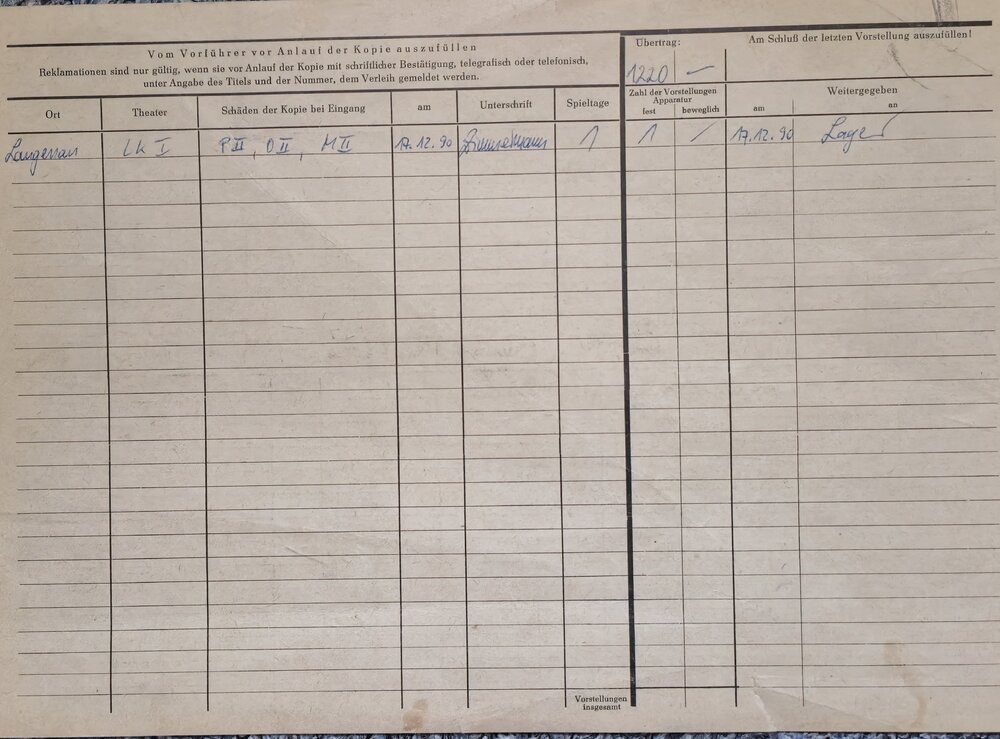 Vom Vorführer vor Anlauf der Kopie auszufüllen
Reklamationen sind nur gültig, wenn sie vor Anlauf der Kopie mit schriftlicher Bestätigung, telegrafisch oder telefonisch,
unter Angabe des Titels und der Nummer, dem Verleih gemeldet werden.
Übertrag:
1220 —
Am Schluß der letzten Vorstellung auszufüllen!
Ort Theater Schäden der Kopie bei Eingang am Unterschrift Spieltage
Zahl der Vorstellungen
Apparatur
fest beweglich
Weitergegeben
am an
LK I P II, O II, M II 17.12.90 1 1 / 17.12.90 Lager
Vorstellungen
insgesamt